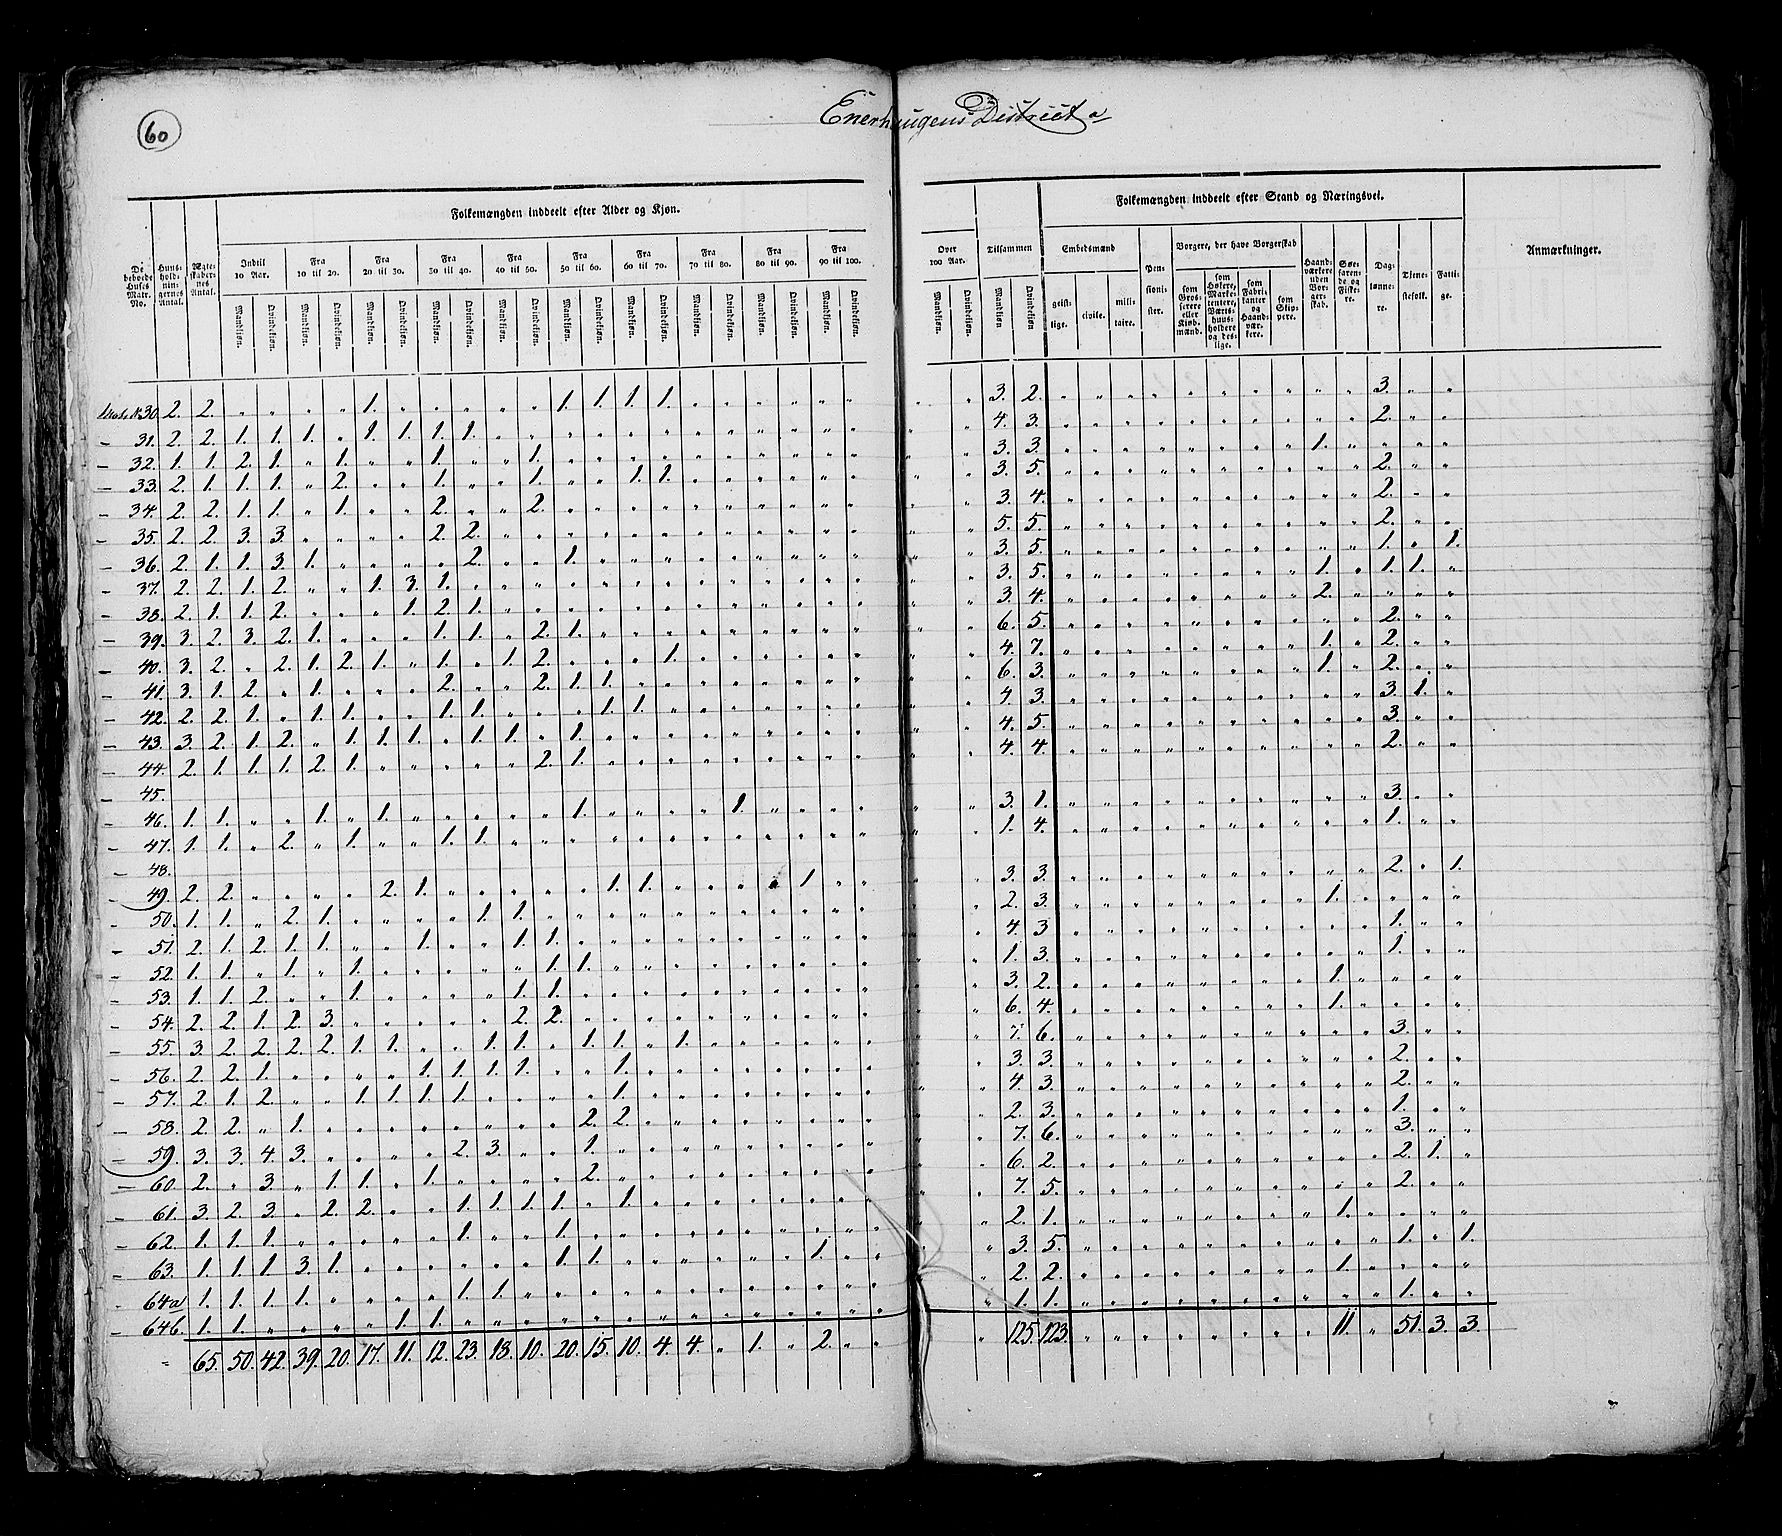 60
Enerhaugens District a
Folkemængden inddeelt efter Alder og Kjøn.
Folkemængden inddeelt efter Stand og Næringsvei.
De beboede Huses Matr. No.
Huus-hold-nin-gernes Antal.
Ægte-skaber-nes Antal.
Indtil 10 Aar.
Fra 10 til 20.
Fra 20 til 30.
Fra 30 til 40.
Fra 40 til 50.
Fra 50 til 60.
Fra 60 til 70.
Fra 70 til 80.
Fra 80 til 90.
Fra 90 til 100.
Over 100 Aar.
Tilsammen
Embedsmænd
Pen-sioni-ster.
Borgere, der have Borgerskab
Haand-værkere uden Bor-ger-skab.
Søe-faren-de og Fiske-re.
Dag-lønne-re.
Tjene-stefolk.
Fatti-ge.
Anmærkninger.
Mandkiøn. Qvindekiøn.
geist-lige. civile. mili-taire.
som Gros-serere eller Kiøb-mænd.
som Høkere, Marke-tentere, Værts-huus-holdere og des-lige.
som Fabri-kanter og Haand-vær-kere.
som Skip-pere.
30. 2. 2. " " " " 1. " " " " " 1. 1. 1. 1. 3. 2. 3.
31. 2. 2. 1. 1. 1. " 1. 1. 1. 1. 4. 3. 2.
32. 1. 1. 2. 1. " 1. " " 1. " " 1. 3. 3. 1.
33. 2. 1. 1. 1. " 2. " " 1. " " 1. " " 1. 1. 3. 5. 2.
34. 2. 2. 1. 1. " 1. " " 2. " " 2. 3. 4. 2.
35. 2. 2. 3. 3. " " " " 2. 2. 5. 5. 2.
36. 2. 1. 1. 3. 1. " " " " 2. " " 1. 3. 5. 1. " 1.
37. 2. 2. 1. 2. " " 1. 3. 1. 3. 5. 1. " 1. 1.
38. 2. 1. 1. 2. " " " 1. 2. 1. 3. 4. 2.
39. 3. 2. 3. 2. 1. " " " 1. 1. " 2. 1. 6. 5. 2.
40. 3. 2. " 2. 1. 2. 1. " 1. " 1. 2. " " " 1. 4. 7. 1. " 2.
41. 3. 1. 2. " 1. " " " 2. " " 2. 1. 1. 6. 3. 1. " 2.
42. 2. 2. 1. " 1. 1. " " 1. 1. " " " 1. 1. 4. 3. 3. 1.
43. 3. 2. 1. 2. " 1. 1. 1. " 1. 1. " 1. 4. 5. 3.
44. 2. 1. 1. 1. 2. 1. " " " " " 2. 1. 4. 4. 2.
45.
46. 1. 1. " " 1. " 1. " " " " " 1. " " " " 1. 3. 1. 3.
47. 1. 1. " 2. " 1. " " 1. 1. 1. 4. 1.
48.
49. 2. 2. " " " " 2. 1. " " " " " 1. 1. " " " " 1. 3. 3. 2. " 1.
50. 1. 1. " 2. 1. " " " " 1. 1. 2. 3. 1.
51. 2. 1. 2. 1. 1. " " 1. " " 1. 1. 4. 3 1.
52. 1. 1. " 1. " 1. " " " " " 1. 1. 1. 3. 1.
53. 1. 1. 2. " " 1. " " " " 1. 1. 3. 2. 1.
54. 2. 2. 1. 2. 3. " " " " " 2. 2. 6. 4. 1.
55. 3. 2. 2. 2. 2. 1. 1. " " 1. 1. " 1. 1. " 1. 7. 6. 3.
56. 2. 2. 1. " " " " 1. 1. 1. 1. " " 1. 3. 3. 2.
57. 2. 1. 2. " " 1. 1. 1. 1. " " " " 1. 4. 3. 2.
58. 2. 2. " 1. " " " " " " " " 2. 2. 2. 3. 1.
59. 3. 3. 4. 3. " " " " 2. 3. " " 1. 7. 6. 3.
60. 2. " 3. " 1. 1. " 1. " " " " 2. 6. 2. 2. 1.
61. 3. 2. 3. " 2. 2. " " 1. 1. 1. 1. " 1. 7. 5. 2.
62. 1. 1. 1. " " " " " 1. " " 1. 2. 1. 1.
63. 1. 1. 1. 3. 1. " " " " " " 1. 1. " " " " " " 1. 3. 5. 1. " 1.
64a 1. 1. 1. 1. " " " " 1. 1. 2. 2. 1.
64b. 1. 1. " " " " 1. 1. 1. 1. 1.
65. 50. 42. 39. 20. 17. 11. 12. 23. 18. 10. 20. 15. 10. 4. 4. " 1. " 2. " " " 125. 123. 11. " 51. 3. 3.